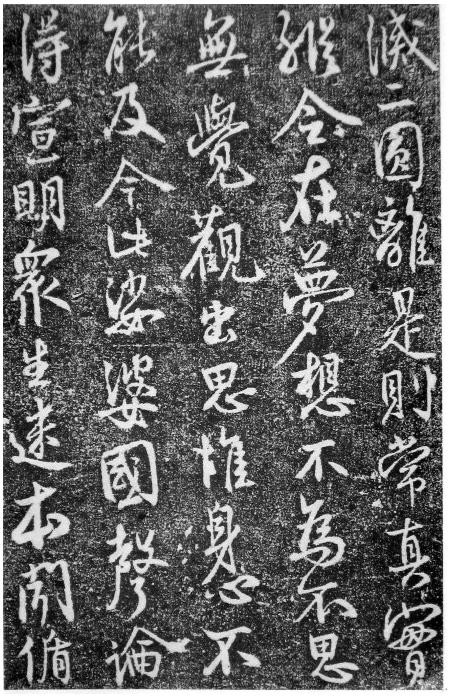 滅二圓離是則常真實
縱令在夢想不為不思
無覺觀出思惟身心不
能及今此娑婆國聲論
得宣明眾生迷本聞循